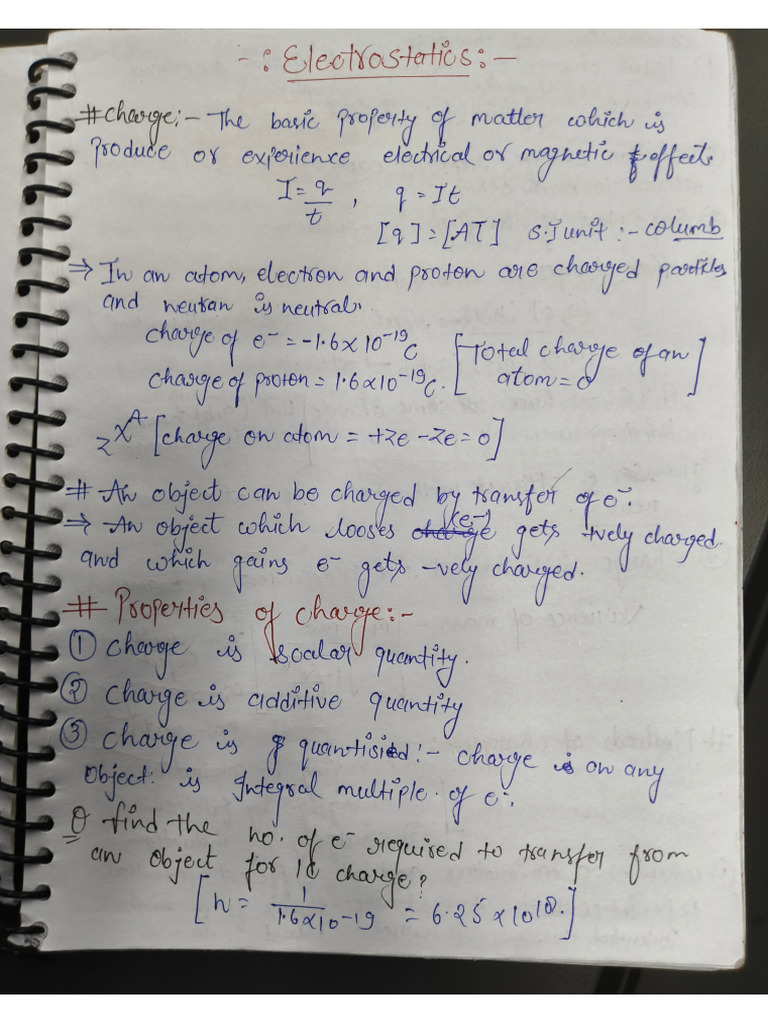 -: Electrostatics :-
# Charge:- The basic property of matter which is
produce or experience electrical or magnetic effect.
I = q/t , q = It
[q] = [AT] S.I unit :- columb
⇒ In an atom, electron and proton are charged particles
and neutran is neutral.
charge of e⁻ = -1.6 x 10⁻¹⁹ C
charge of proton = 1.6 x 10⁻¹⁹ C. [Total charge of an atom = 0]
zXᴬ [charge on atom = +ze - ze = 0]
# An object can be charged by transfer of e⁻.
⇒ An object which looses (e⁻) gets +vely charged
and which gains e⁻ gets -vely charged.
# Properties of charge:-
① Charge is scalar quantity.
② Charge is additive quantity
③ Charge is quantisied:- charge is on any
object is Integral multiple of e⁻.
Q find the no. of e⁻ required to transfer from
an object for 1C charge?
[n = 1/1.6x10-19 = 6.25 x 10¹⁸.]